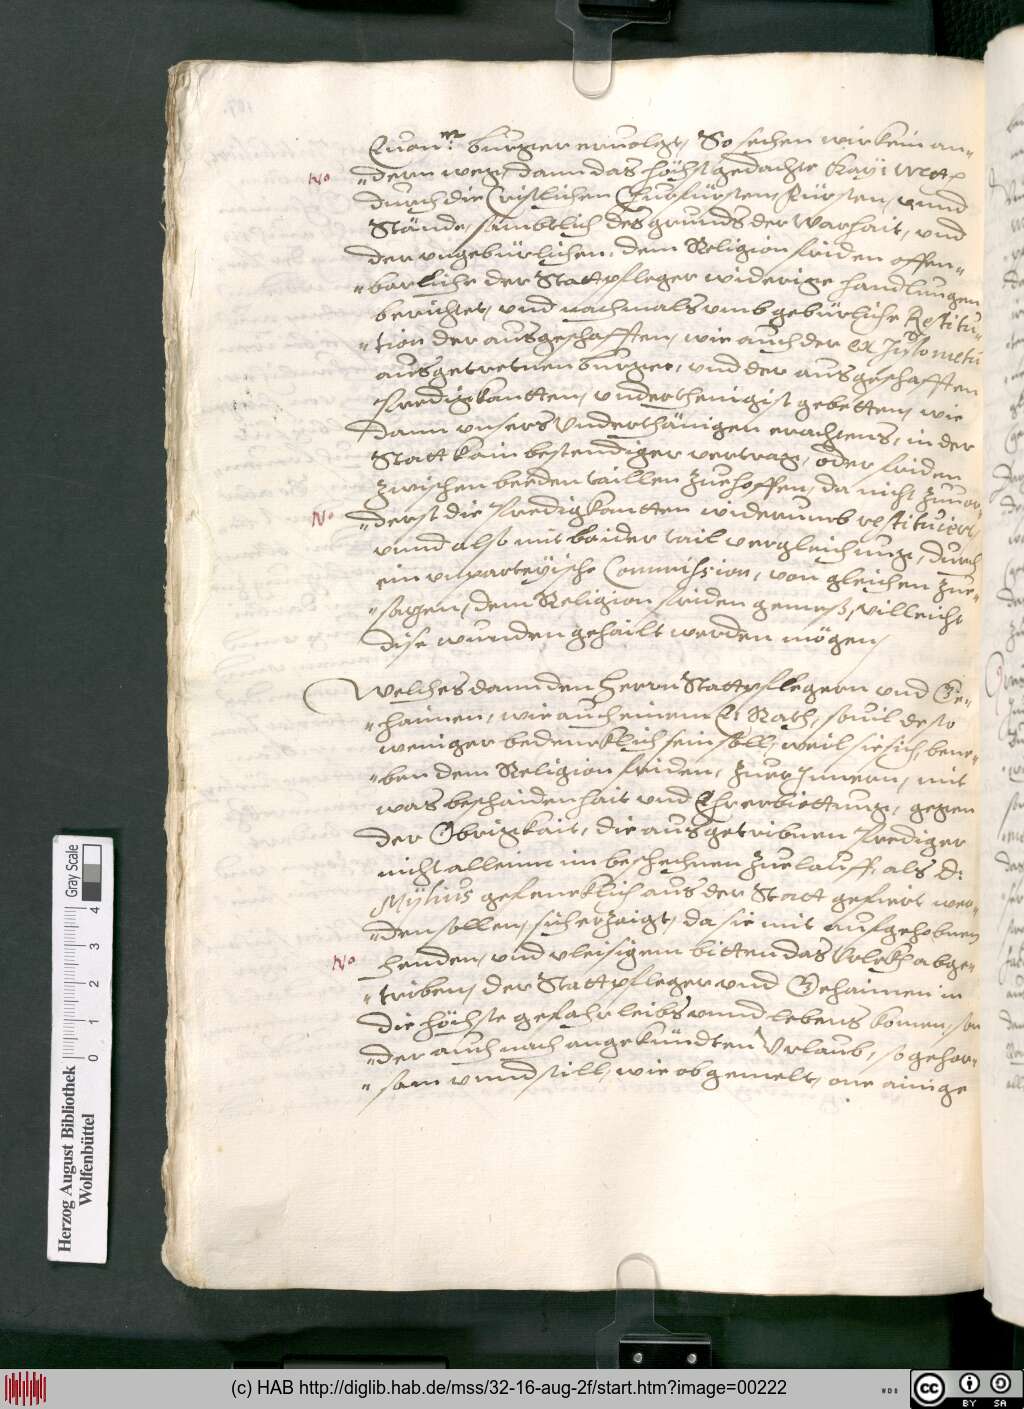 burger ervolgt, So sehen wir kein an-
No
dern weg, dann das höchstgedachte Kay: Mtt
durch die Cristlichen Churfürsten, Fürsten, vnnd
Stände, sambtlich des grunds der Warhait, vnd
der vngebürlichen, dem Religion friden offen-
barliche der Stattpfleger widerige handlungen
berichtet, vnd nachmals vmb gebürliche Restitu-
tion der ausgeschafften, wie auch der ex iusto metu
ausgetretnen burger, vnd der ausgeschafften
Predigkantten, vnderthenigist gebetten, wie
dann vnsers Vnderthänigen erachtens, in der
Statt kain bestendiger vertrag, oder friden
zwischen beeden taillen zuehoffen, da nicht zuuor-
No
derst die Predigkantten widerumb restituiert,
vnnd also mit baider tail vergleichung, durch
ein vnparteyische Commission, von gleichen zue-
sagen, dem Religion friden gemeß, villeicht
dise wunden gehailt werden mögen,
Welches dann den Herrn Stattpflegern vnd Ge-
haimen, wie auch einem E: Rath, souil desto
weniger bedencklich sein soll, weil sie sich, bene-
ben dem Religion friden, zuerJnnern, mit
was beschaidenhait vnd Ehrerbiettung, gegen
der Obrigkait, die ausgetribnen Prediger
nicht allein im beschechnen zuelauff, als D:
Mylius gefencklich aus der Statt gefiert wer-
den sollen, sich erzaigt, da sie mit aufgehobnen
No
henden, vnd vleisigem bitten das Volckh abge-
triben, der Stattpfleger vnd Gehaimen in
die höchste gefahr leibs vnnd lebens komen, son
der auch nach angekündten Vrlaub, so gehor-
sam vnnd still, wie obgemelt, one ainige
Herzog August Bibliothek
Wolfenbüttel
0 1 2 3 4
Gray Scale
(c) HAB http://diglib.hab.de/mss/32-16-aug-2f/start.htm?image=00222
WDB
cc
BY SA